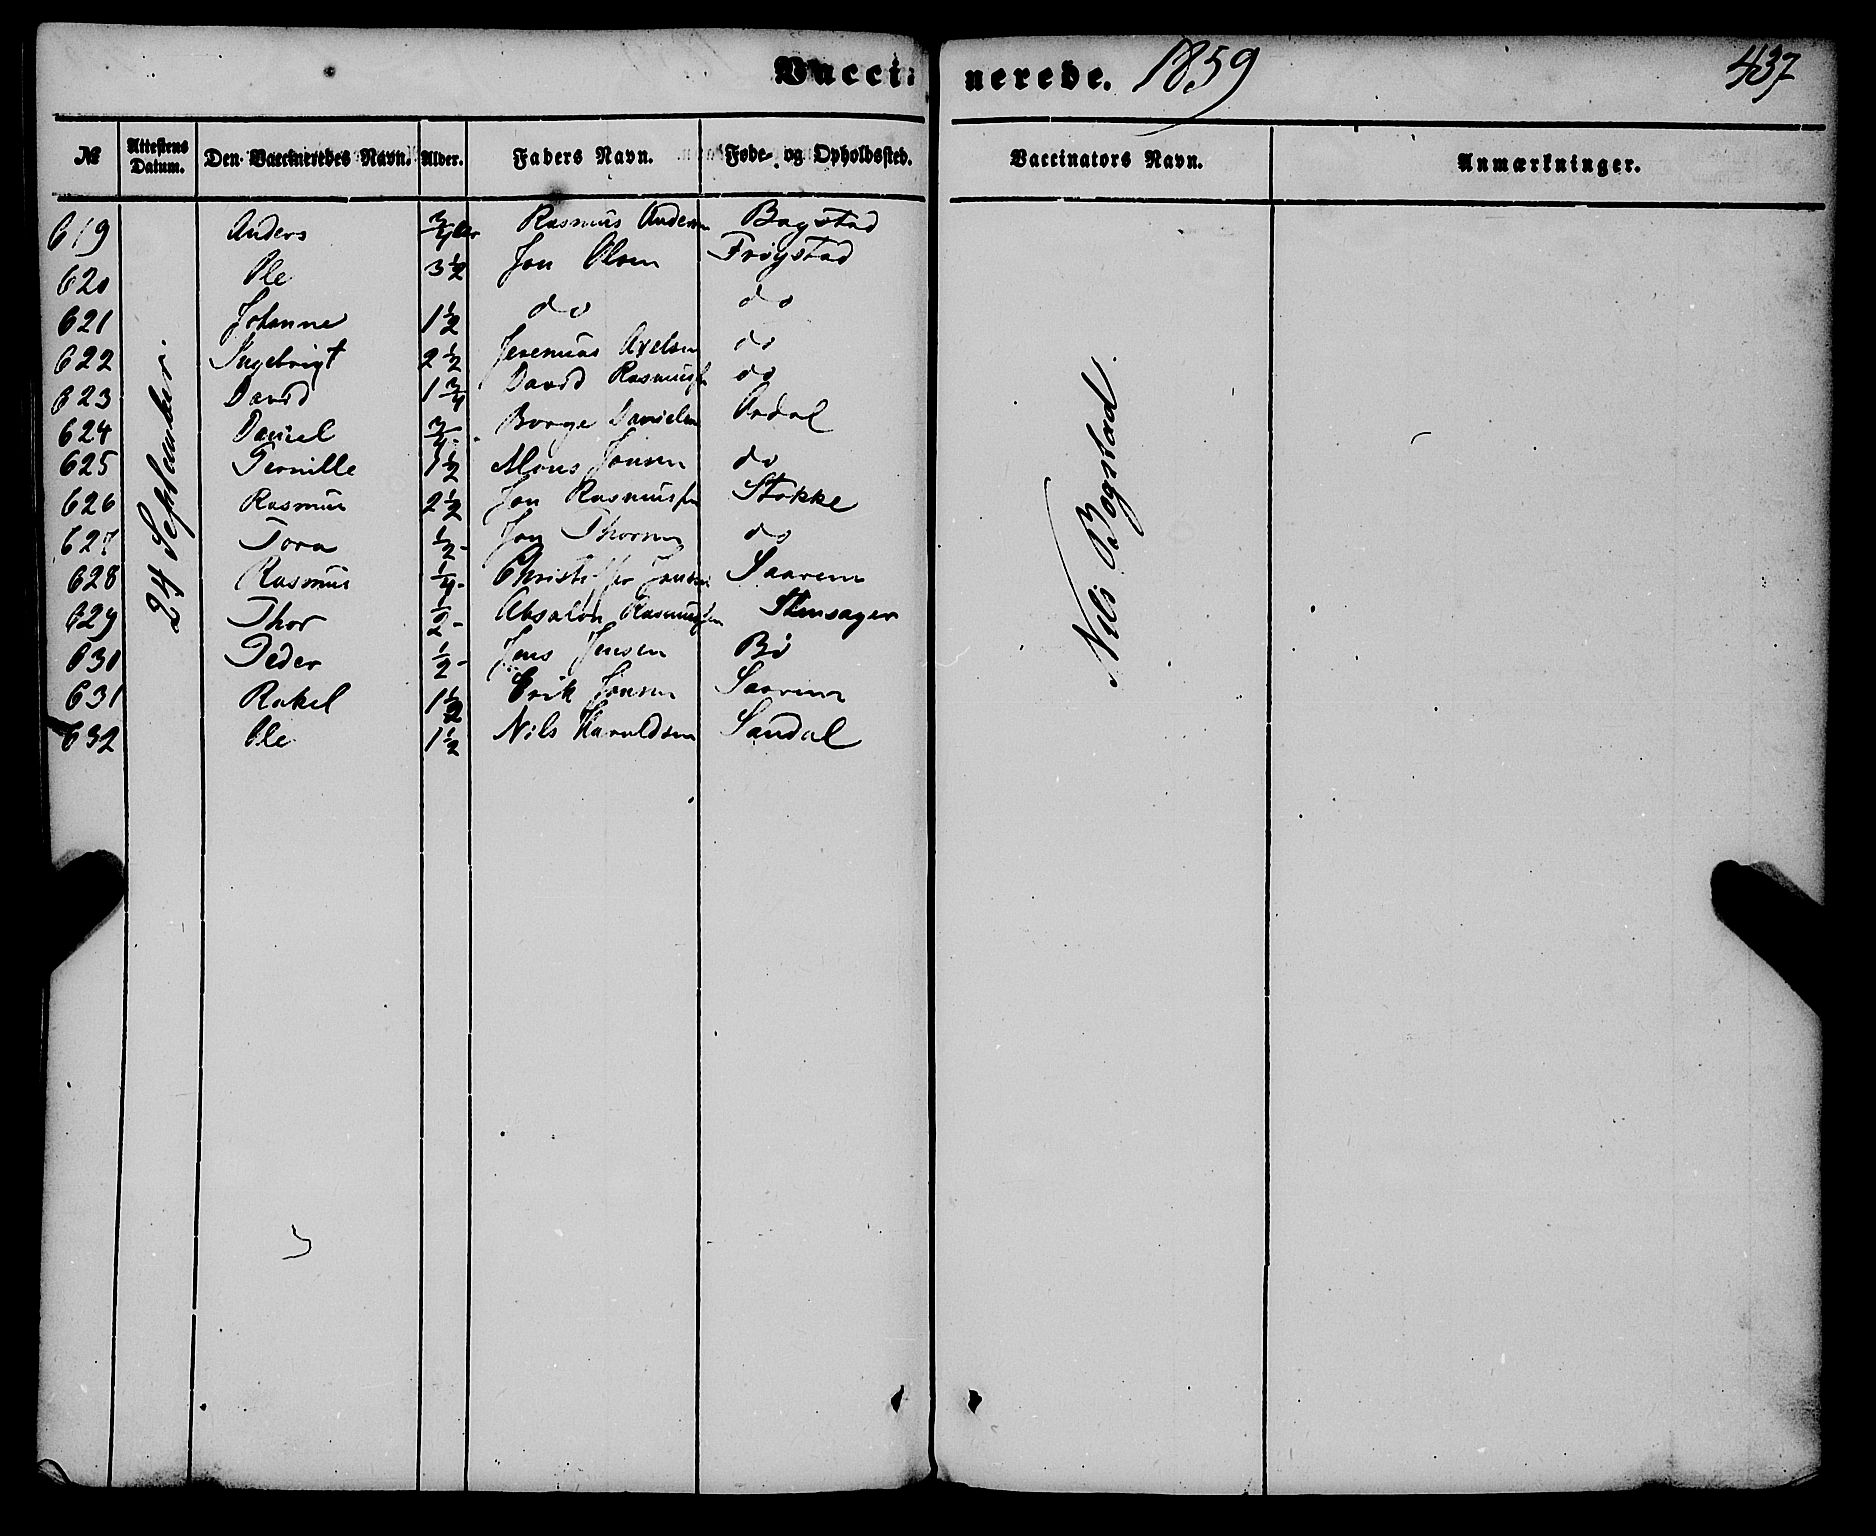 Vaccinerede. 1859 437
№ Attestens Datum. Den Vaccineredes Navn. Alder. Faders Navn. Føde- og Opholdssted. Vaccinators Navn. Anmærkninger.
24 September.
Nils Bogstad
619 Anders 3/4 Rasmus Bogstad
620 Ole 3 1/2 Jon Olsen Frøystad
621 Johanne 1 1/2 do do
622 Ingebrigt 2 1/2 Jeremias Axelsen do
623 David 1 3/4 David Rasmussen do
624 Daniel 3/4 - Børge Danielsen Ardal
625 Pernille 1 1/2 Mons Jonsen do
626 Rasmus 2 1/2 Jon Rasmussen Støkke
627 Tora 1/2 - Jon do
628 Rasmus 1/4 - Christoffer Jensen Saarem
629 Thor 1/2 - Absalon Rasmussen Stensager
630 Peder 1/2 - Jens Jensen Bø
631 Rakel 1 1/2 Erik Jonsen Saarem
632 Ole 1 1/2 Nils Haraldsen Sandal